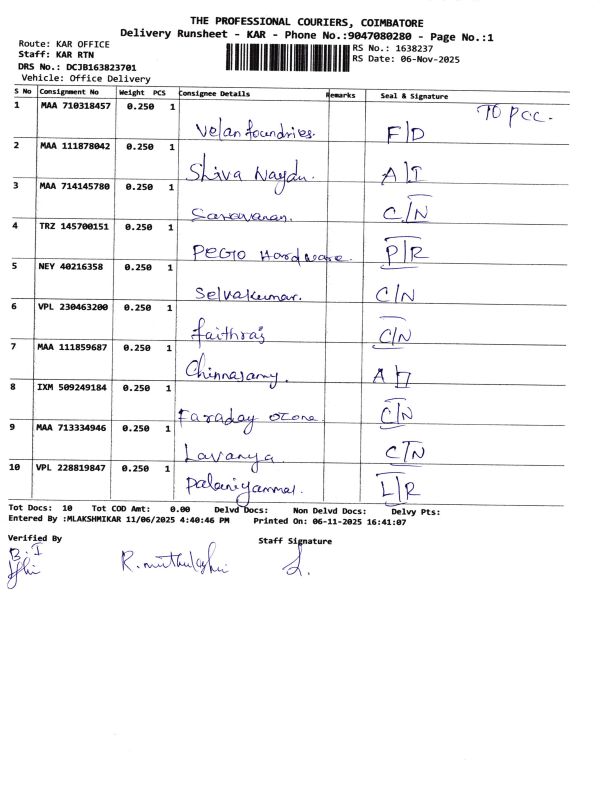 THE PROFESSIONAL COURIERS, COIMBATORE
Delivery Runsheet - KAR - Phone No.:9047080280 - Page No.:1
Route: KAR OFFICE
RS No.: 1638237
Staff: KAR RTN
RS Date: 06-Nov-2025
DRS No.: DCJB163823701
Vehicle: Office Delivery
S No Consignment No Weight PCS Consignee Details Remarks Seal & Signature
To pcc.
1 MAA 710318457 0.250 1 Velan foundries. F/D
2 MAA 111878042 0.250 1 Shiva Naydu. A/I
3 MAA 714145780 0.250 1 Saravanan. C/N
4 TRZ 145700151 0.250 1 PEGIO Hardware. P/R
5 NEY 40216358 0.250 1 Selvakumar. C/N
6 VPL 230463200 0.250 1 faithra's C/N
7 MAA 111859687 0.250 1 Chinnasamy. A
8 IXM 509249184 0.250 1 Faraday ozone C/N
9 MAA 713334946 0.250 1 Lavanya. C/N
10 VPL 228819847 0.250 1 Palaniyammal. L/R
Tot Docs: 10 Tot COD Amt: 0.00 Delvd Docs: Non Delvd Docs: Delvy Pts:
Entered By :MLAKSHMIKAR 11/06/2025 4:40:46 PM Printed On: 06-11-2025 16:41:07
Verified By
Staff Signature
B.I